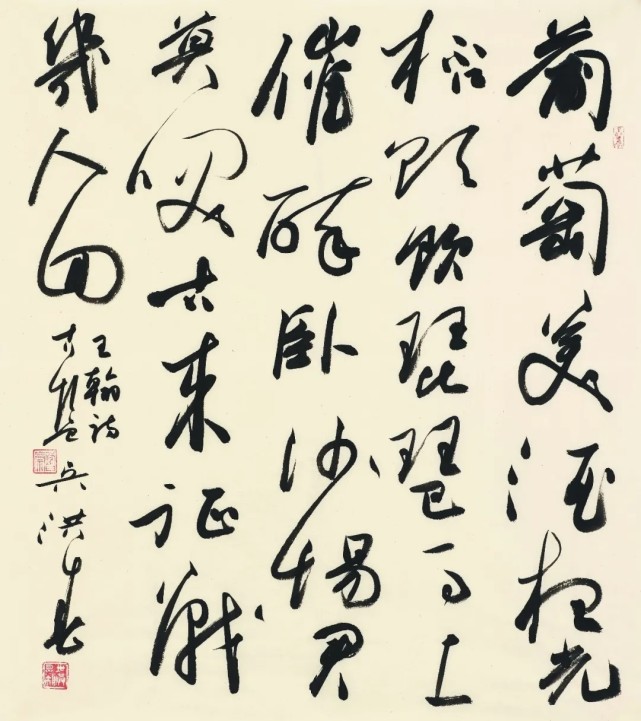 葡萄美酒夜光
杯欲飲琵琶馬上
催醉臥沙場君
莫咲古来征戰
幾人回
王翰詩
吴洪春